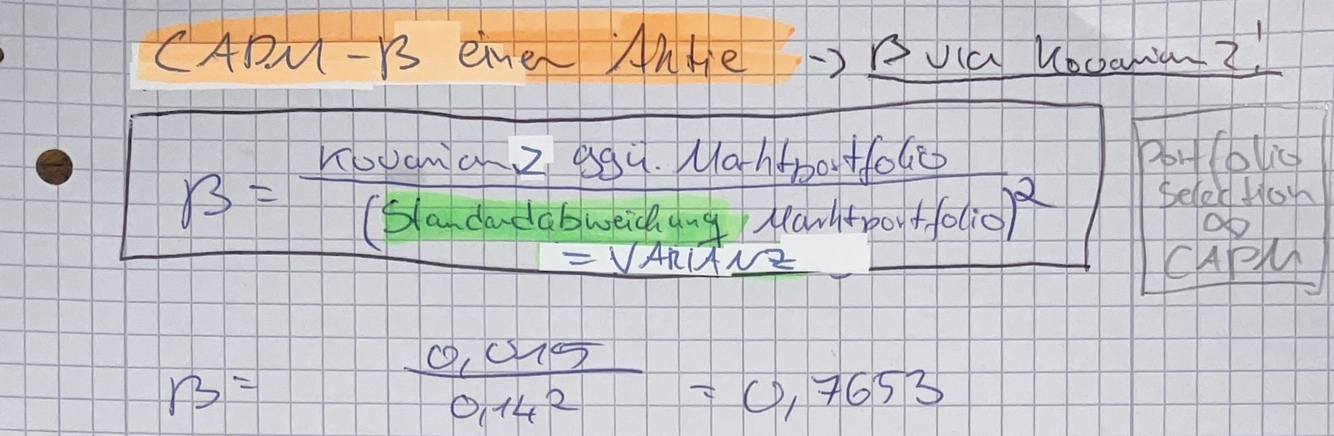 CAPM-β einer Aktie → β via Kovarianz!
β = Kovarianz ggü. Marktportfolio
(Standardabweichung Marktportfolio)²
= VARIANZ
Portfolio
Selection
∞
CAPM
β = 0,015
0,14² = 0,7653